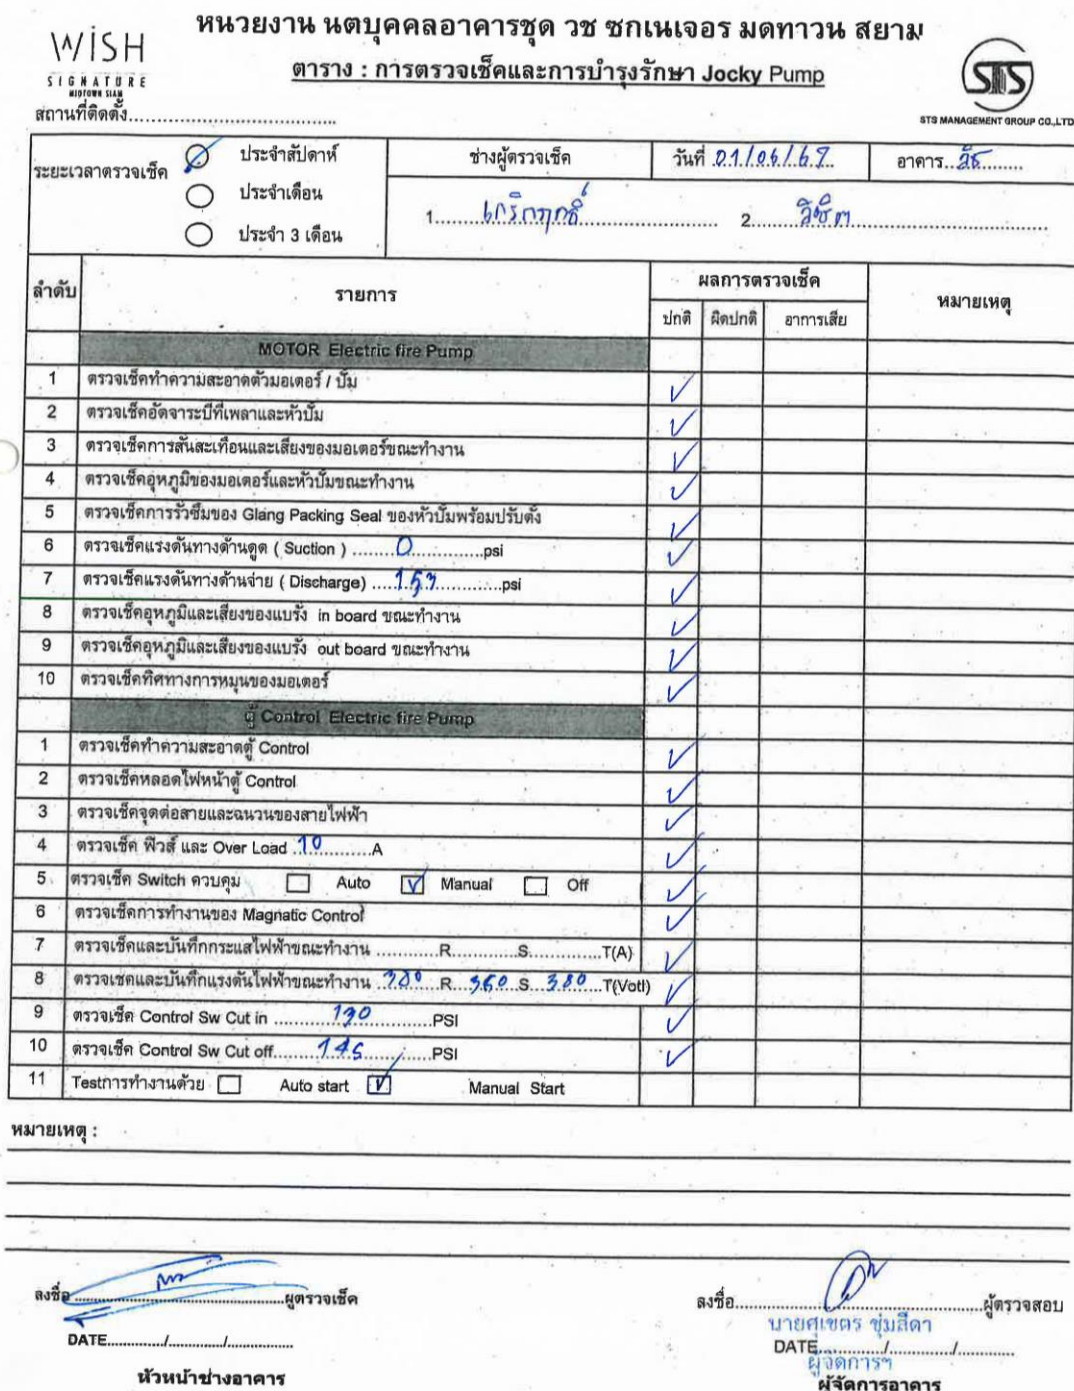 หนวยงาน นตบุคคลอาคารชุด วช ซกเนเจอร มดทาวน สยาม
WISH
SIGNATURE
MIDTOWN SIAM
ตาราง : การตรวจเช็คและการบำรุงรักษา Jocky Pump
STS
STS MANAGEMENT GROUP CO.,LTD
สถานที่ติดตั้ง....................................
ระยะเวลาตรวจเช็ค ประจำสัปดาห์ ช่างผู้ตรวจเช็ค วันที่ 01/06/67 อาคาร...วิช.........
ประจำเดือน
1....เกริกฤทธิ์.... 2....วิชิต....
ประจำ 3 เดือน
ลำดับ รายการ ผลการตรวจเช็ค หมายเหตุ
ปกติ ผิดปกติ อาการเสีย
MOTOR Electric fire Pump
1 ตรวจเช็คทำความสะอาดตัวมอเตอร์ / ปั๊ม ✓
2 ตรวจเช็คอัดจาระบีที่เพลาและหัวปั๊ม ✓
3 ตรวจเช็คการสั่นสะเทือนและเสียงของมอเตอร์ขณะทำงาน ✓
4 ตรวจเช็คอุหภูมิของมอเตอร์และหัวปั๊มขณะทำงาน ✓
5 ตรวจเช็คการรั่วซึมของ Glang Packing Seal ของหัวปั๊มพร้อมปรับตั้ง ✓
6 ตรวจเช็คแรงดันทางด้านดูด ( Suction ) ........0...............psi ✓
7 ตรวจเช็คแรงดันทางด้านจ่าย ( Discharge) ....153..............psi ✓
8 ตรวจเช็คอุหภูมิและเสียงของแบริ่ง in board ขณะทำงาน ✓
9 ตรวจเช็คอุหภูมิและเสียงของแบริ่ง out board ขณะทำงาน ✓
10 ตรวจเช็คทิศทางการหมุนของมอเตอร์ ✓
ตู้ Control Electric fire Pump
1 ตรวจเช็คทำความสะอาดตู้ Control ✓
2 ตรวจเช็คหลอดไฟหน้าตู้ Control ✓
3 ตรวจเช็คจุดต่อสายและฉนวนของสายไฟฟ้า ✓
4 ตรวจเช็ค ฟิวส์ และ Over Load .10..........A ✓
5 ตรวจเช็ค Switch ควบคุม ☐ Auto ☑ Manual ☐ Off ✓
6 ตรวจเช็คการทำงานของ Magnatic Control ✓
7 ตรวจเช็คและบันทึกกระแสไฟฟ้าขณะทำงาน ............R.............S..............T(A) ✓
8 ตรวจเชคและบันทึกแรงดันไฟฟ้าขณะทำงาน ..380..R...360..S...380...T(Votl) ✓
9 ตรวจเช็ค Control Sw Cut in ..........130..............PSI ✓
10 ตรวจเช็ค Control Sw Cut off........145............PSI ✓
11 Testการทำงานด้วย ☐ Auto start ☑ Manual Start
หมายเหตุ :
ลงชื่อ....................................ผูตรวจเช็ค
ลงชื่อ....................................ผู้ตรวจสอบ
นายศุเขตร ชุ่มสีดา
DATE............./............./..............
DATE............./............./..............
ผู้จัดการฯ
หัวหน้าช่างอาคาร
ผู้จัดการอาคาร